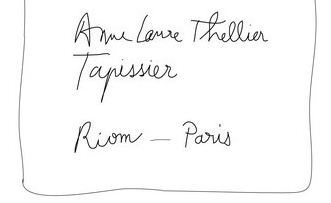 Anne Laure Thellier
Tapissier
Riom — Paris